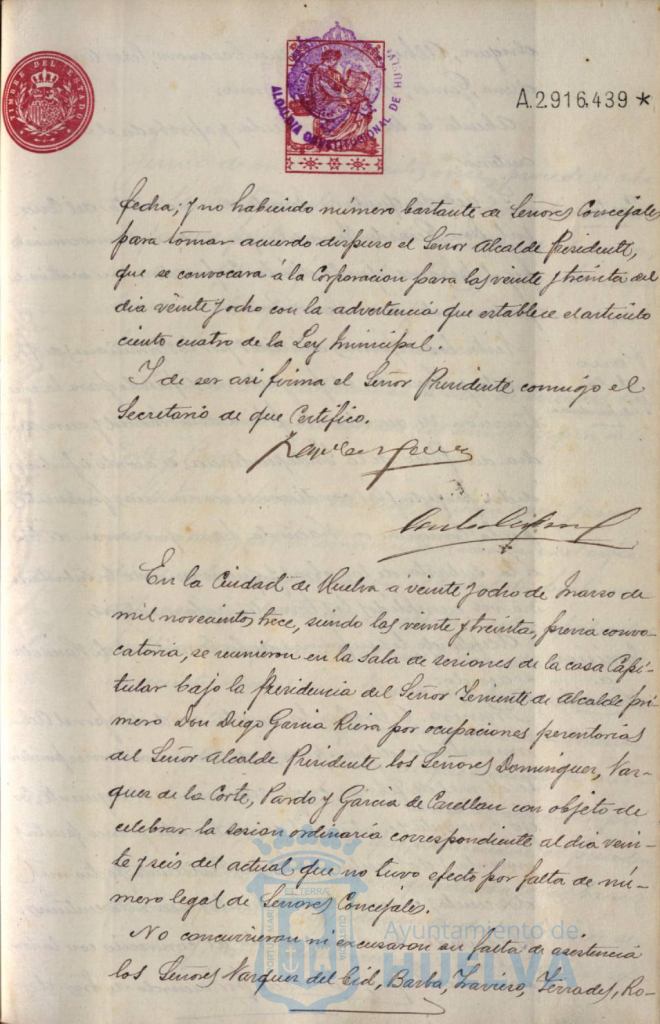 TIMBRE DEL ESTADO
ALCALDIA CONSTITUCIONAL DE HUELVA
A.2916,439 *
fecha; y no habiendo número bastante de Señores Concejales
para tomar acuerdo dispuso el Señor Alcalde Presidente,
que se convocara á la Corporacion para las veinte y treinta del
dia veinte y ocho con la advertencia que establece el articulo
ciento cuatro de la Ley Municipal.
Y de ser asi firma el Señor Presidente conmigo el
Secretario de que Certifico.
En la Ciudad de Huelva á veinte y ocho de Marzo de
mil novecientos trece, siendo las veinte y treinta, previa convo-
catoria, se reunieron en la Sala de sesiones de la casa Capi-
tular bajo la Presidencia del Señor Teniente de Alcalde pri-
mero Don Diego Garcia Riera por ocupaciones perentorias
del Señor Alcalde Presidente los Señores Dominguez, Vaz-
quez de la Corte, Pardo y Garcia de Castellan con objeto de
celebrar la sesion ordinaria correspondiente al dia vein-
te y seis del actual que no tuvo efecto por falta de nú-
mero legal de Señores Concejales.
No concurrieron ni excusaron su falta de asistencia
los Señores Vazquez del Cid, Barba, Traviero, Terrades, Ro-
Ayuntamiento de
HUELVA